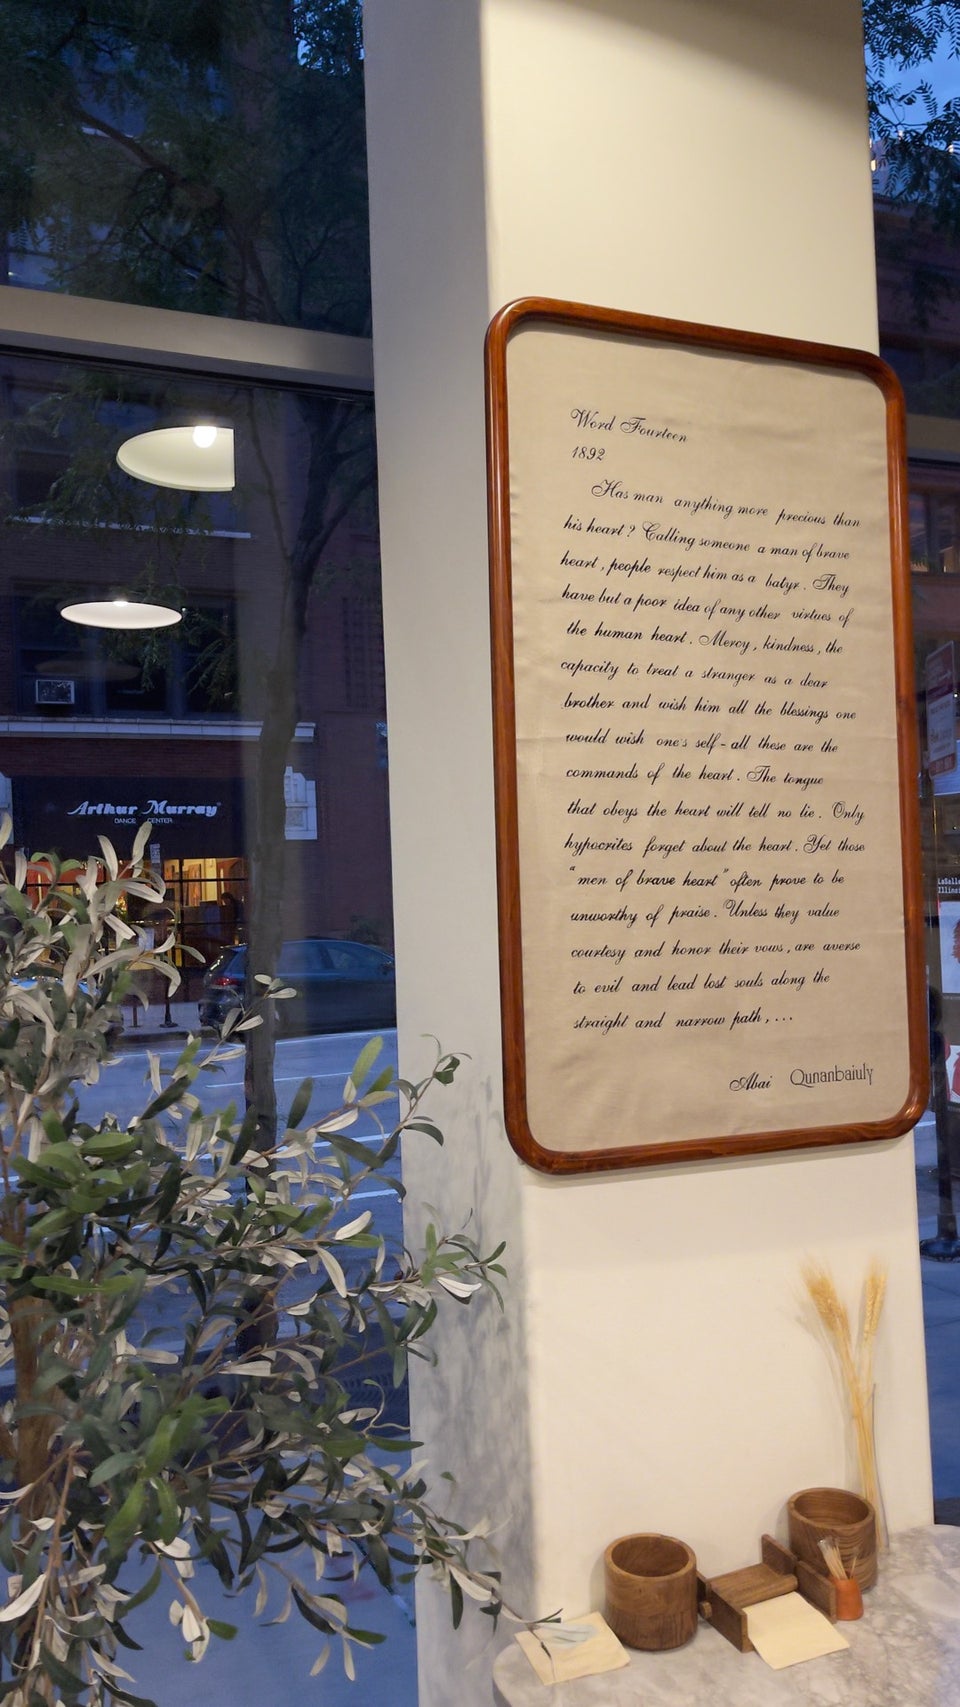 Word Fourteen
1892
Has man anything more precious than
his heart? Calling someone a man of brave
heart, people respect him as a batyr. They
have but a poor idea of any other virtues of
the human heart. Mercy, kindness, the
capacity to treat a stranger as a dear
brother and wish him all the blessings one
would wish one's self - all these are the
commands of the heart. The tongue
that obeys the heart will tell no lie. Only
hypocrites forget about the heart. Yet those
"men of brave heart" often prove to be
unworthy of praise. Unless they value
courtesy and honor their vows, are averse
to evil and lead lost souls along the
straight and narrow path, ...
Abai Qunanbaiuly
Arthur Murray
DANCE CENTER